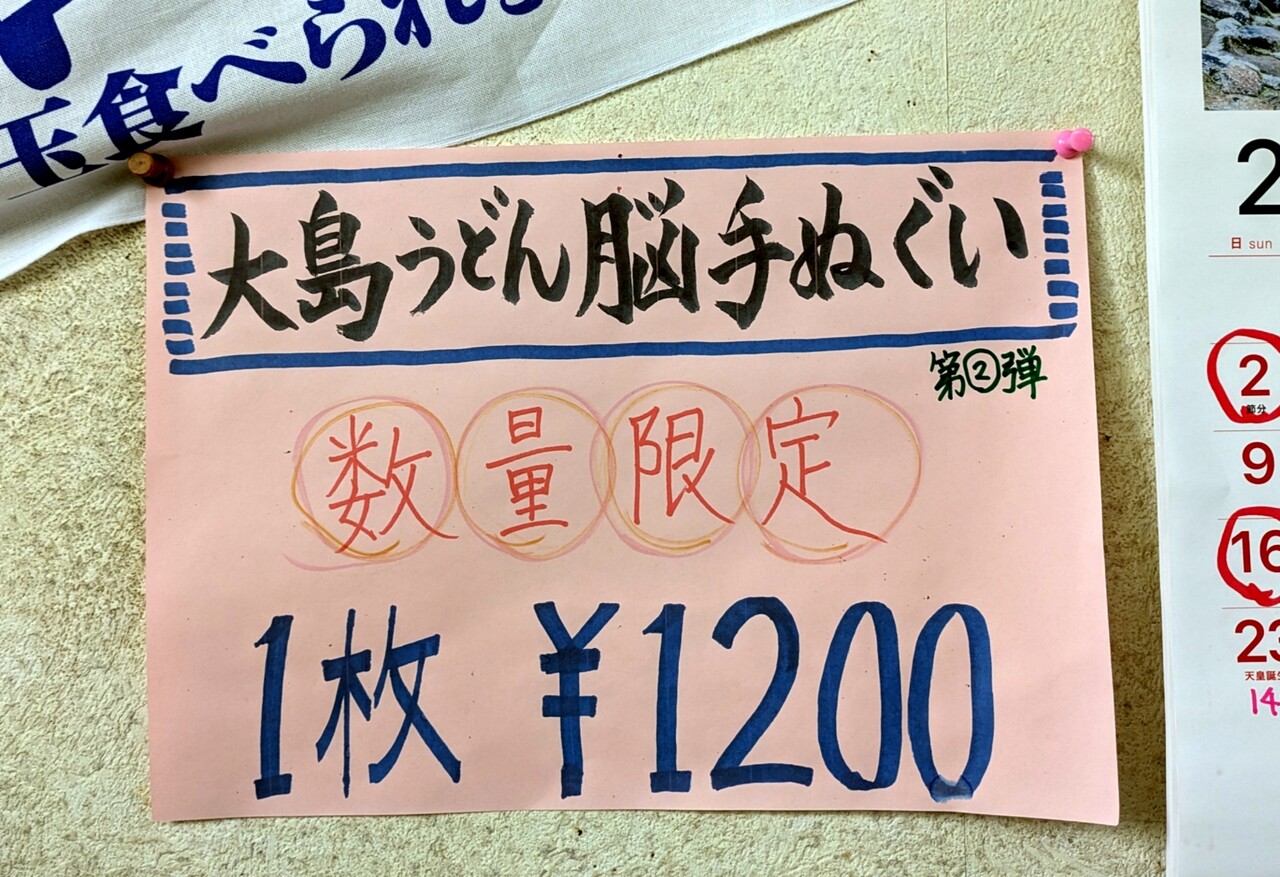 玉食べられ
大島うどん脳手ぬぐい
第②弾
数量限定
1枚 ¥1200
2
日 sun
2
節分
9
16
23
14